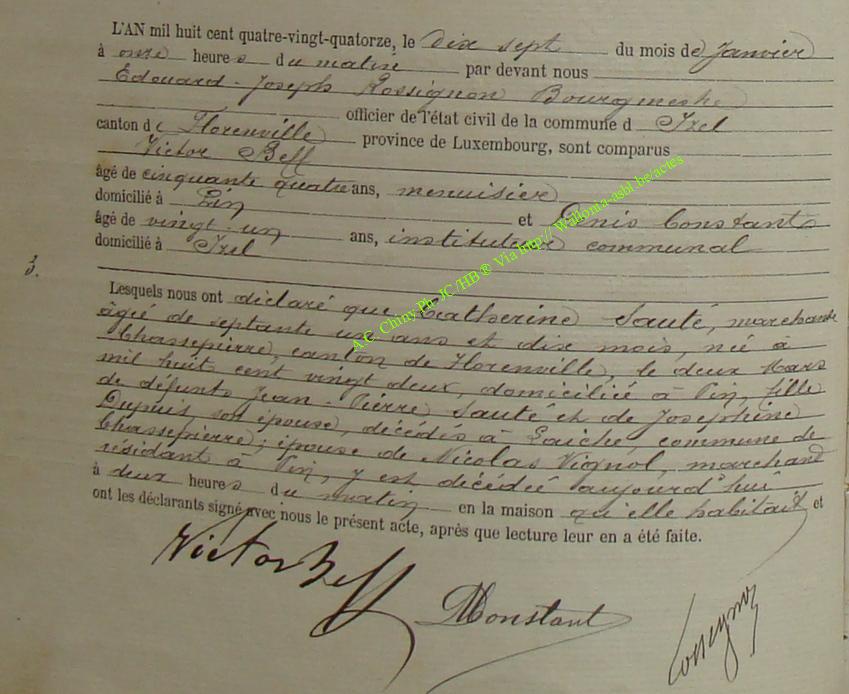 L'AN mil huit cent quatre-vingt-quatorze, le dix sept du mois de Janvier
à onze heures du matin par devant nous
Edouard-Joseph Rossignon Bourgmestre
officier de l'état civil de la commune d Izel
canton de Florenville province de Luxembourg, sont comparus
Victor Beff
âgé de cinquante quatre ans, menuisier
domicilié à Pin et Denis Constant
âgé de vingt-un ans, instituteur communal
domicilié à Izel
3.
Lesquels nous ont déclaré que Catherine Sauté, marchande
âgée de septante un ans et dix mois, née à
Chassepierre, canton de Florenville, le deux Mars
mil huit cent vingt deux, domiciliée à Pin, fille
de défunts Jean-Pierre Sauté et de Josephine
Dupuis son épouse, décédés à Laiche, commune de
Chassepierre; épouse de Nicolas Vignol, marchand
résidant à Pin, y est décédée aujourd'hui
à deux heures du matin en la maison qu'elle habitait et
ont les déclarants signé avec nous le présent acte, après que lecture leur en a été faite.
Victor Beff
DConstant
Rossignon
A.C. Chiny Ph JC/HB ® Via http// Wallonia-asbl.be/actes